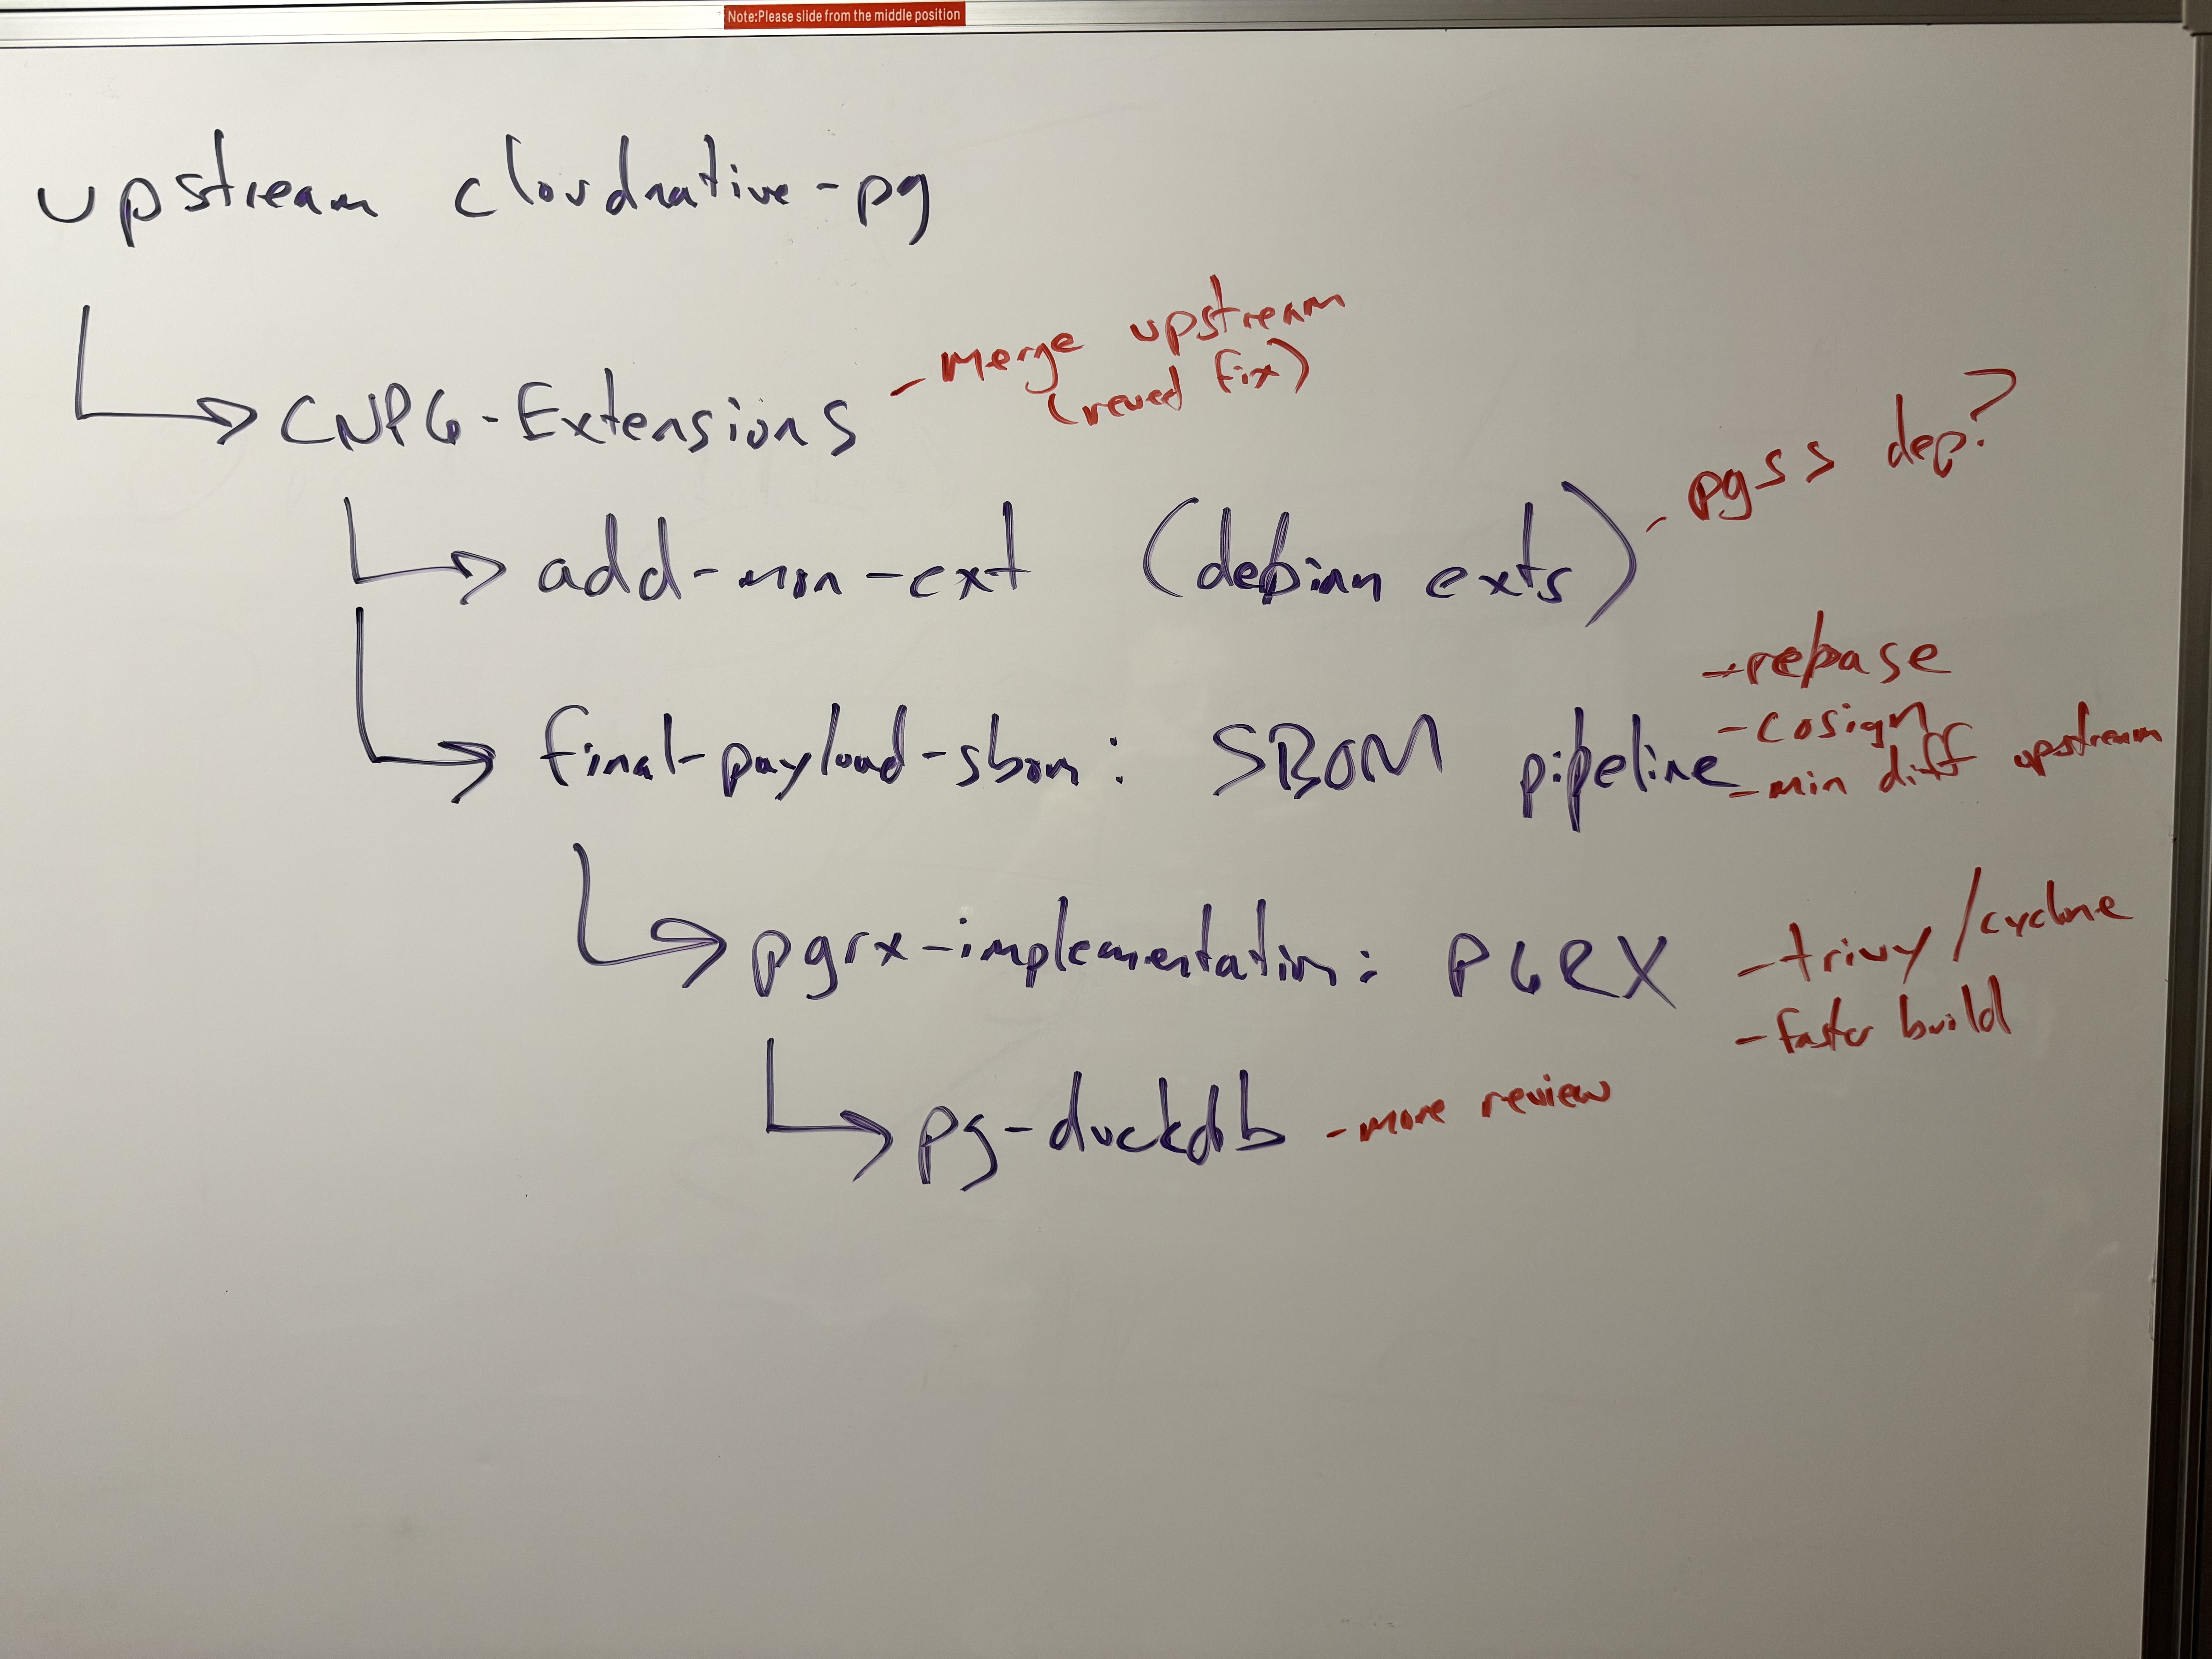 Note:Please slide from the middle position
upstream cloudnative-pg
CNPG-Extensions
- merge upstream
(reued fix)
add-mon-ext (debian exts)
- pgss dep?
final-payload-sbom: SBOM pipeline
- rebase
- cosign
- min diff upstream
pgrx-implementation: PGRX
- trivy/cyclone
- faster build
pg-duckdb - more review